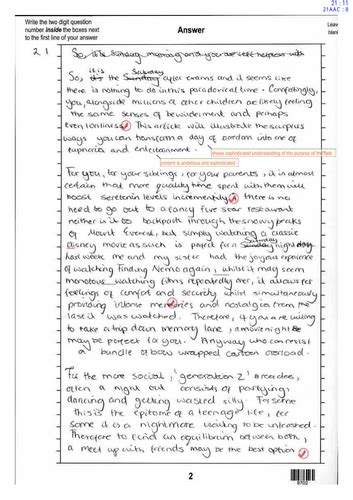 21:11
21AAC : 8
Write the two digit question
number inside the boxes next
to the first line of your answer
Answer
Leav
blank
2 1
So, it is Saturday after exams and it seems like
there is nothing to do in this paradoxical time. Compellingly,
you, alongside millions of other children are likely feeling
the same senses of bewilderment and perhaps
even lonliness. This article will illustrate the
ways you can transform a day of boredom into one of
euphoria and entertainment.
shows sophisticated understanding of the purpose of the task
content is ambitious and sophisticated
For you, for your siblings, for your parents, it is almost
certain that more quality time spent with them will
boost seretonin levels incrementally there is no
need to go out to a fancy five star restaurant
neither is it to backpack through the snowy peaks
of Mount Everest, but simply watching a classic
disney movie as such is perfect for a Saturday night
Last week me and my sister had the joyous experience
of watching Finding Nemo again, whilst it may seem
monotous watching films repeatedly, it allows for
feelings of comfort and security whilst simultaneously
providing intense memories and nostalgia from the
last it was watched. Therefore, if you are willing
to take a trip down memory lane, a movie night
may be perfect for you. Anyway who can resist
a bundle of bow wrapped cartoon overload.
For the more social, 'generation Z' areadree,
often a night out consists of partying,
dancing and getting wasted silly. For some
this is the epitome of a teenage life, for
some it is a nightmare waiting to be unleashed.
Therefore to find an equilibrium between both,
a meet up with friends may be the best option
2
8702